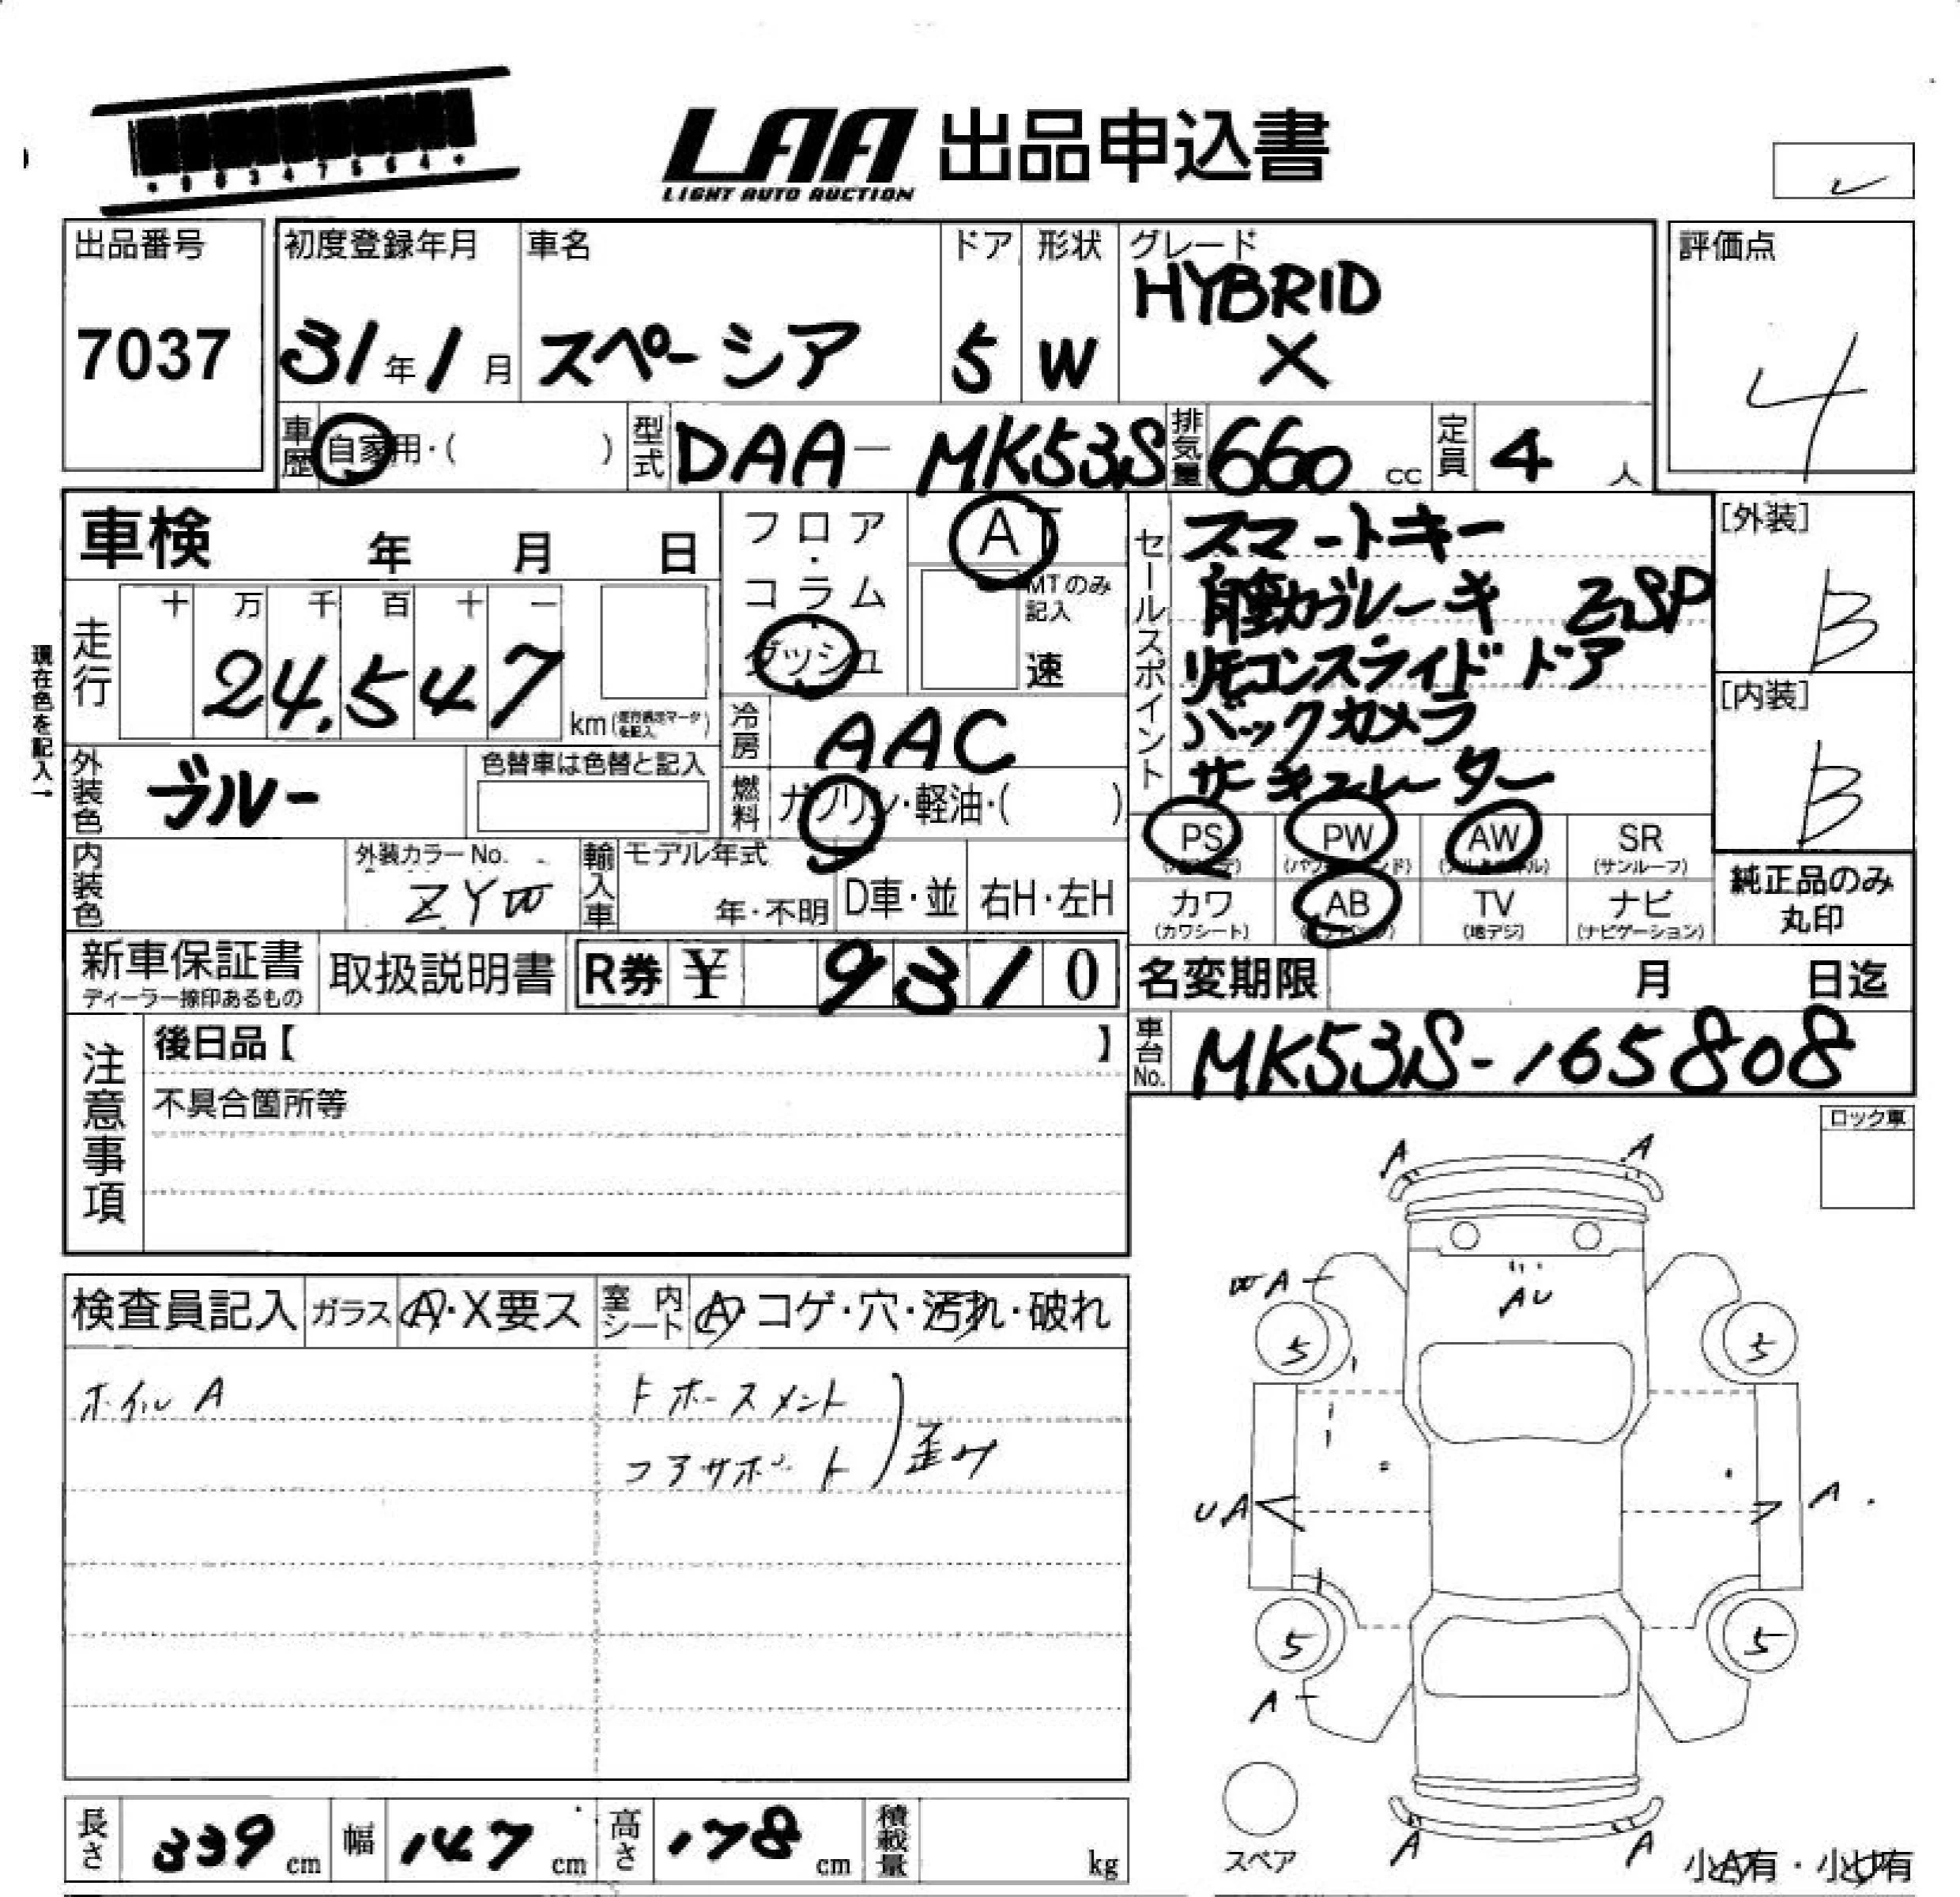 LAA 出品申込書
LIGHT AUTO AUCTION
出品番号
7037
初度登録年月
31年1月
車名
スペーシア
ドア
5
形状
W
グレード
HYBRID
X
評価点
4
車歴
自家用・( )
型式
DAA-MK53S
排気量
660 cc
定員
4 人
車検 年 月 日
フロア・コラム
ダッシュ
AT
MTのみ記入
速
セールスポイント
スマートキー
自動ブレーキ ESP
リモコンスライドドア
バックカメラ
サーキュレーター
[外装]
B
[内装]
B
現在色を記入→
走行
十 万 千 百 十 一
24,547
km
冷房
AAC
外装色
ブルー
色替車は色替と記入
燃料
ガソリン・軽油・( )
PS
PW
AW
SR
(サンルーフ)
カワ
(カワシート)
AB
TV
(地デジ)
ナビ
(ナビゲーション)
純正品のみ
丸印
内装色
外装カラーNo.
輸入車
モデル年式
年・不明
D車・並
右H・左H
新車保証書
ディーラー捺印あるもの
取扱説明書
R券 ¥ 9310
名変期限 月 日迄
車台No.
MK53S-165808
注意事項
後日品【 】
不具合箇所等
ロック車
検査員記入
ガラス
A・X要ス
室内シート
A・コゲ・穴・汚れ・破れ
ホイルA
ホースメント
コアサポート
歪み
A
A
A
AU
5
5
UA
A
5
5
A
A
A
スペア
小A有・小U有
長さ
339 cm
幅
147 cm
高さ
178 cm
積載量
kg